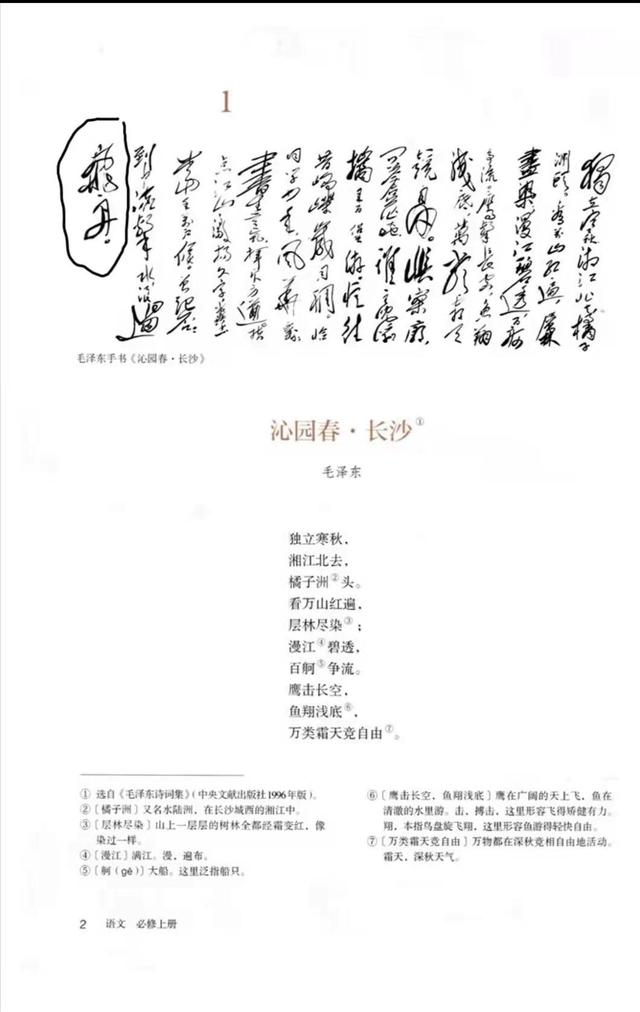 1
獨立寒秋湘江北去橘子
洲頭看萬山紅遍層林
盡染漫江碧透百舸
爭流鷹擊長空魚翔
淺底萬類霜天
競自由。悵寥廓
問蒼茫大地誰主沉浮
攜來百侶曾游憶往
昔崢嶸歲月稠恰
同學少年風華正茂
書生意氣揮斥方遒指
點江山激揚文字糞土
當年萬戶侯曾記否
到中流擊水浪遏
飛舟。
毛泽东手书《沁园春·长沙》
沁园春·长沙①
毛泽东
独立寒秋，
湘江北去，
橘子洲②头。
看万山红遍，
层林尽染③；
漫江④碧透，
百舸⑤争流。
鹰击长空，
鱼翔浅底⑥，
万类霜天竞自由⑦。
① 选自《毛泽东诗词集》（中央文献出版社1996年版）。
②〔橘子洲〕又名水陆洲，在长沙城西的湘江中。
③〔层林尽染〕山上一层层的树林全都经霜变红，像
染过一样。
④〔漫江〕满江。漫，遍布。
⑤〔舸（gě）〕大船。这里泛指船只。
⑥〔鹰击长空，鱼翔浅底〕鹰在广阔的天上飞，鱼在
清澈的水里游。击，搏击，这里形容飞得矫健有力。
翔，本指鸟盘旋飞翔，这里形容鱼游得轻快自由。
⑦〔万类霜天竞自由〕万物都在深秋竞相自由地活动。
霜天，深秋天气。
2 语文 必修上册